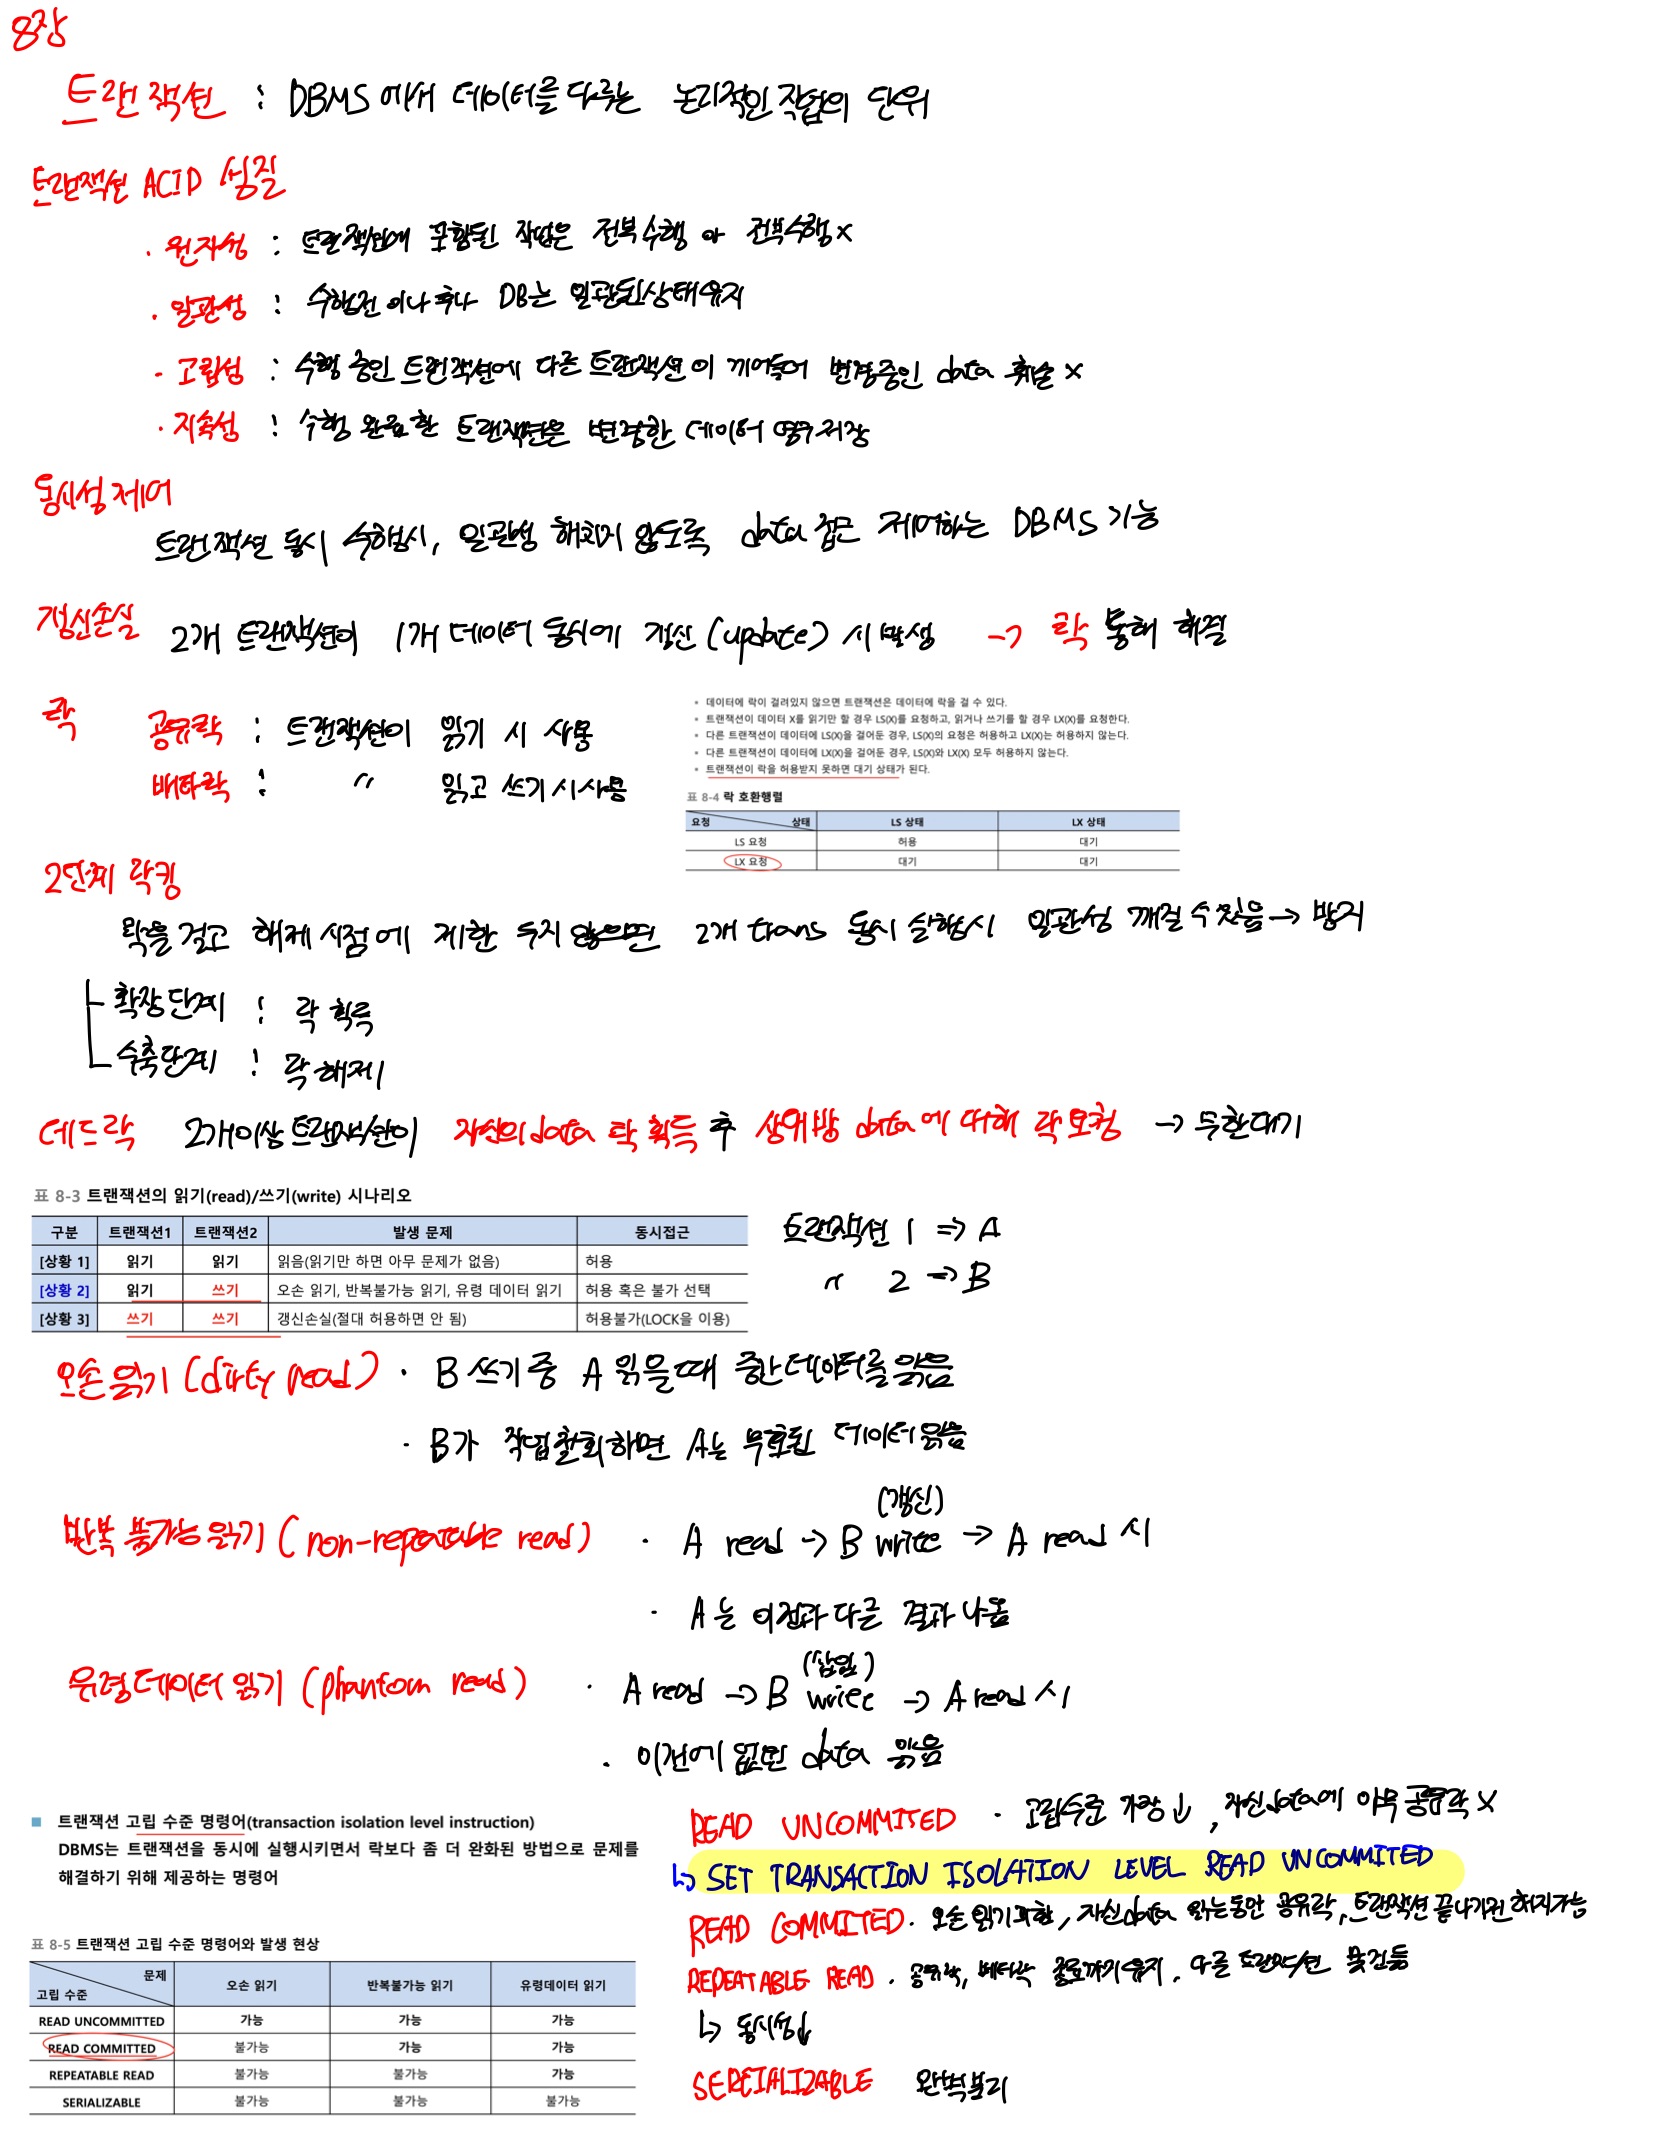 8장
트랜잭션 : DBMS에서 데이터를 다루는 논리적인 작업의 단위
트랜잭션 ACID 성질
· 원자성 : 트랜잭션에 포함된 작업은 전부수행 or 전부수행 x
· 일관성 : 수행전이나 후나 DB는 일관된상태유지
· 고립성 : 수행 중인 트랜잭션에 다른 트랜잭션이 끼어들어 변경중인 data 훼손 x
· 지속성 : 수행 완료한 트랜잭션은 변경한 데이터 영구저장
동시성 제어
트랜잭션 동시 수행시, 일관성 해치지 않도록 data 접근 제어하는 DBMS 기능
갱신손실 2개 트랜잭션이 1개 데이터 동시에 갱신(update) 시 발생 → 락 통해 해결
락 공유락 : 트랜잭션이 읽기 시 사용
배타락 : 〃 읽고 쓰기 시 사용
• 데이터에 락이 걸려있지 않으면 트랜잭션은 데이터에 락을 걸 수 있다.
• 트랜잭션이 데이터 X를 읽기만 할 경우 LS(X)를 요청하고, 읽거나 쓰기를 할 경우 LX(X)를 요청한다.
• 다른 트랜잭션이 데이터에 LS(X)을 걸어둔 경우, LS(X)의 요청은 허용하고 LX(X)는 허용하지 않는다.
• 다른 트랜잭션이 데이터에 LX(X)을 걸어둔 경우, LS(X)와 LX(X) 모두 허용하지 않는다.
• 트랜잭션이 락을 허용받지 못하면 대기 상태가 된다.
표 8-4 락 호환행렬
요청 상태 LS 상태 LX 상태
LS 요청 허용 대기
LX 요청 대기 대기
2단계 락킹
락을 걸고 해제 시점에 제한 두지 않으면 2개 trans 동시 실행시 일관성 깨질 수 있음 → 방지
확장단계 : 락 획득
수축단계 : 락 해제
데드락 2개이상 트랜잭션이 자신의 data 락 획득 후 상대방 data에 대해 락 요청 → 무한대기
표 8-3 트랜잭션의 읽기(read)/쓰기(write) 시나리오
구분 트랜잭션1 트랜잭션2 발생 문제 동시접근
[상황 1] 읽기 읽기 읽음(읽기만 하면 아무 문제가 없음) 허용
[상황 2] 읽기 쓰기 오손 읽기, 반복불가능 읽기, 유령 데이터 읽기 허용 혹은 불가 선택
[상황 3] 쓰기 쓰기 갱신손실(절대 허용하면 안 됨) 허용불가(LOCK을 이용)
트랜잭션 1 => A
〃 2 => B
오손 읽기 (dirty read) · B 쓰기 중 A 읽을때 중간데이터를 읽음
· B가 작업철회하면 A는 무효된 데이터 읽음
반복 불가능 읽기 (non-repeatable read) · A read → B write (갱신) → A read 시
· A는 이전과 다른 결과 나옴
유령데이터 읽기 (phantom read) · A read → B write (삽입) → A read 시
· 이전에 없던 data 읽음
■ 트랜잭션 고립 수준 명령어(transaction isolation level instruction)
DBMS는 트랜잭션을 동시에 실행시키면서 락보다 좀 더 완화된 방법으로 문제를
해결하기 위해 제공하는 명령어
표 8-5 트랜잭션 고립 수준 명령어와 발생 현상
고립 수준 문제 오손 읽기 반복불가능 읽기 유령데이터 읽기
READ UNCOMMITTED 가능 가능 가능
READ COMMITTED 불가능 가능 가능
REPEATABLE READ 불가능 불가능 가능
SERIALIZABLE 불가능 불가능 불가능
READ UNCOMMITED · 고립수준 가장 ↓, 자신data에 아무 공유락 X
↳ SET TRANSACTION ISOLATION LEVEL READ UNCOMMITED
READ COMMITED · 오손 읽기피함, 자신data 읽는동안 공유락, 트랜잭션 끝나기전 해지가능
REPEATABLE READ · 공유락, 배타락 종료까지 유지, 다른 트랜잭션 못건듬
↳ 동시성↓
SEREIALIZABLE 완벽분리